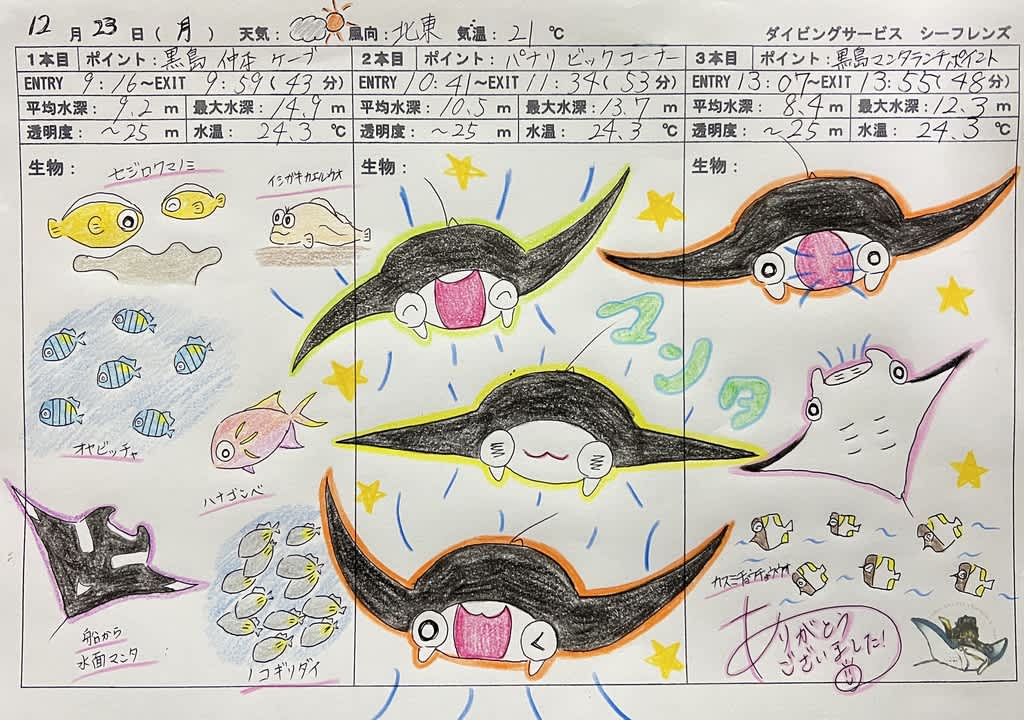 12月23日(月) 天気: 風向:北東 気温:21℃ ダイビングサービス シーフレンズ
1本目 ポイント:黒島 仲本 ケーブ
ENTRY 9:16~EXIT 9:59(43分)
平均水深:9.2m 最大水深:14.9m
透明度:~25m 水温:24.3℃
生物:
セジロクマノミ
イシガキカエルウオ
オヤビッチャ
ハナゴンベ
船から
水面マンタ
ノコギリダイ
2本目 ポイント:パナリ ビックコーナー
ENTRY 10:41~EXIT 11:34(53分)
平均水深:10.5m 最大水深:13.7m
透明度:~25m 水温:24.3℃
生物:
マンタ
3本目 ポイント:黒島マンタランチポイント
ENTRY 13:07~EXIT 13:55(48分)
平均水深:8.4m 最大水深:12.3m
透明度:~25m 水温:24.3℃
生物:
カスミチョウチョウウオ
ありがとう
ございました!